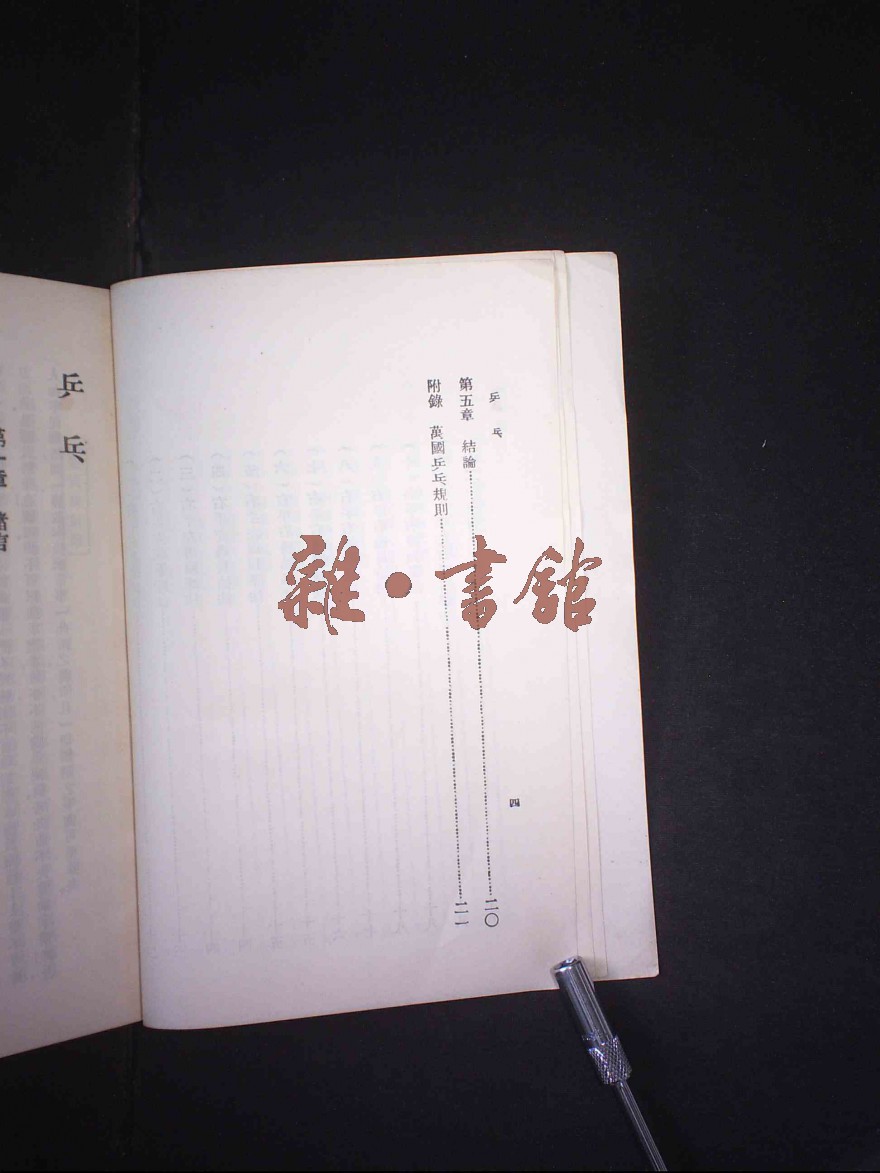 乒乓
第五章 結論……二〇
附錄 萬國乒乓規則……二一
四
乒乓
第一章 緒言
雜·書館